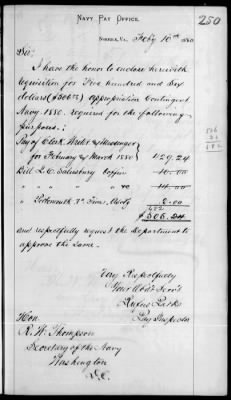 250
NAVY PAY OFFICE,
NORFOLK, VA., Feby 10th 1880
Sir:
I have the honor to enclose herewith
requisition for Five hundred and Six
dollars ($506 00) appropriation Contingent
Navy, 1880, required for the following
purposes:
Pay of Clerk, Writer & Messenger
for February & March 1880 429.24
Bill L.C. Salisbury Coffin
" " " " " 14.00
" Portsmouth
$506.24
and respectfully request the Department to
approve the same.
Very Respectfully
Your Obdt Servt
Rufus Parks
Pay Inspector
Hon.
R. W. Thompson
Secretary of the Navy
Washington
D.C.